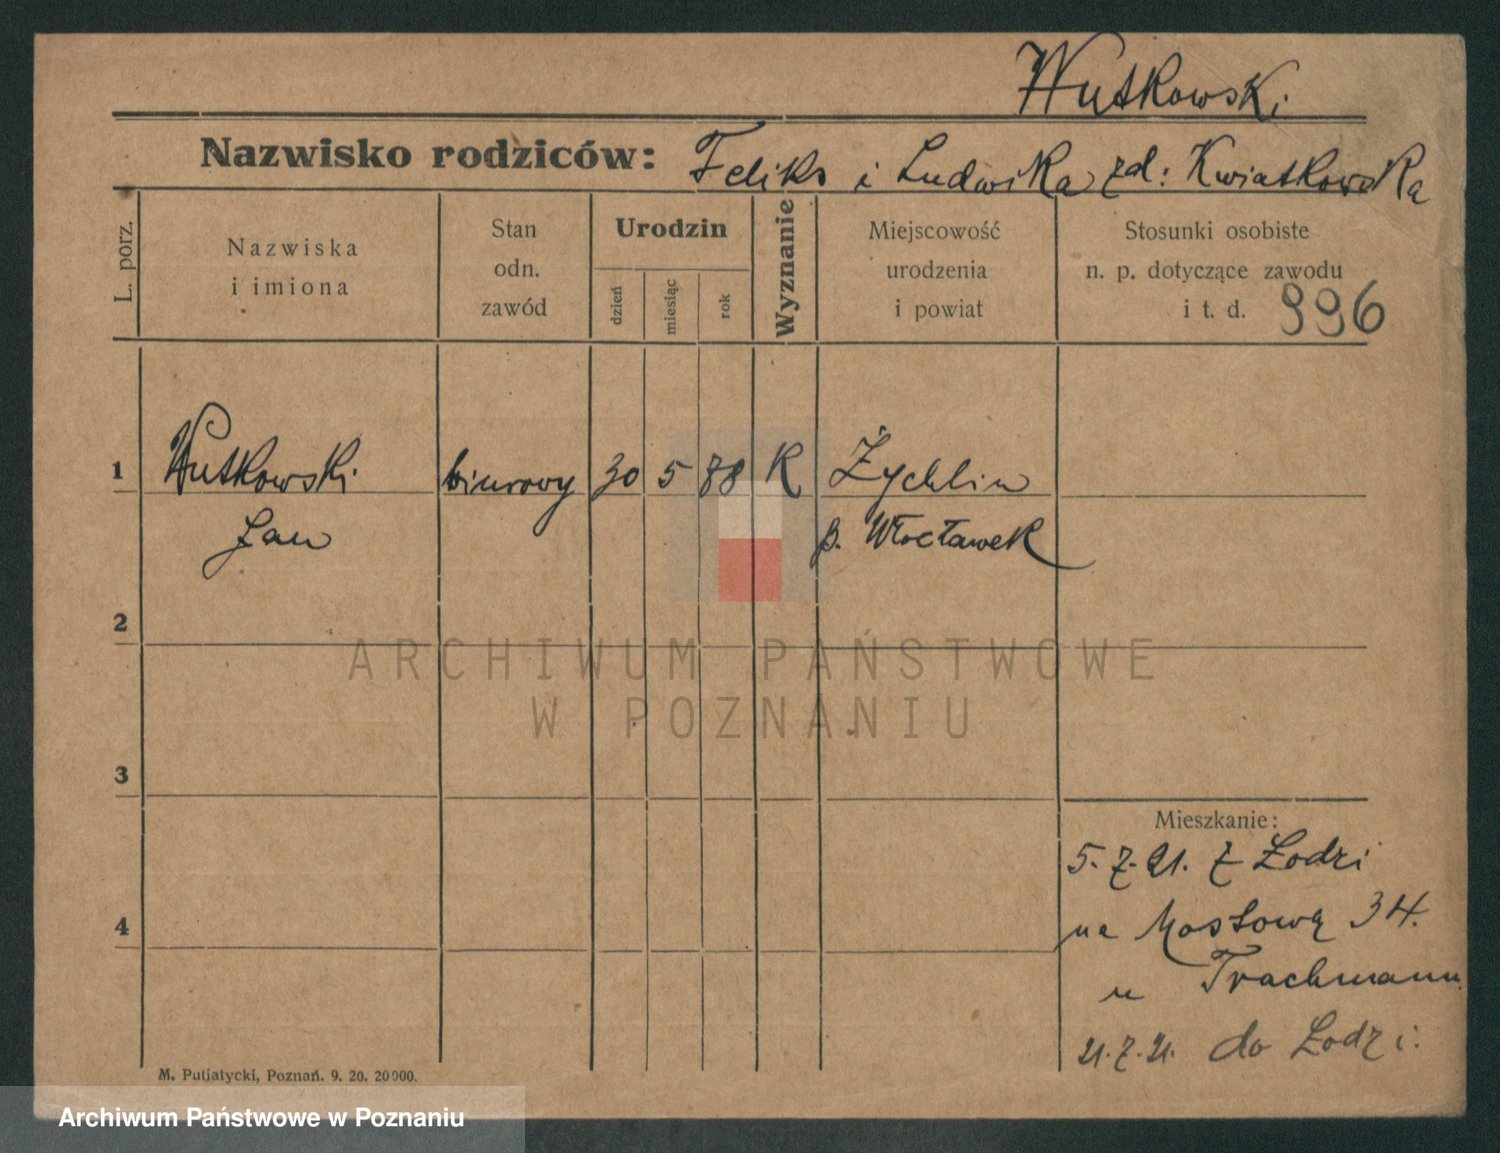 Wutkowski
Nazwisko rodziców: Feliks i Ludwika zd: Kwiatkowska
L. porz.
Nazwiska
i imiona
Stan
odn.
zawód
Urodzin
dzień
miesiąc
rok
Wyznanie
Miejscowość
urodzenia
i powiat
Stosunki osobiste
n. p. dotyczące zawodu
i t. d. 996
1 Wutkowski biurowy 30 5 88 K Żychlin
Jan p. Włocławek
2
ARCHIWUM PAŃSTWOWE
W POZNANIU
3
Mieszkanie:
5.7.21. z Łodzi
4
na Mostową 34.
u Trachmann
21.7.21. do Łodzi.
M. Putiatycki, Poznań. 9. 20. 20000.
Archiwum Państwowe w Poznaniu